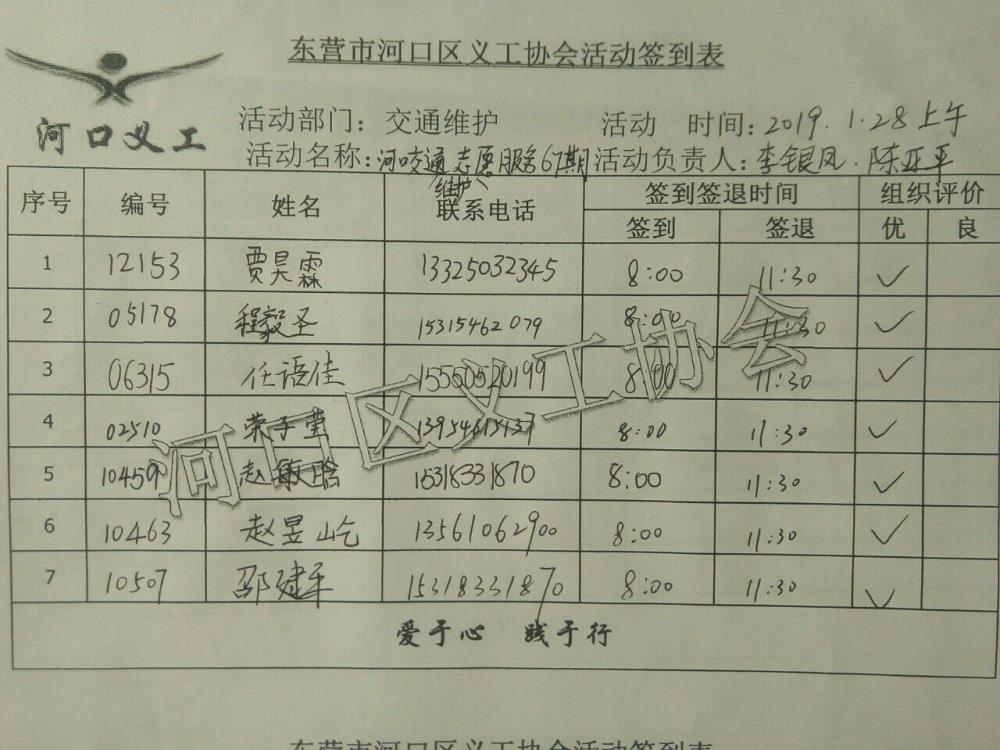 东营市河口区义工协会活动签到表
河口义工
活动部门：交通维护 活动 时间：2019.1.28上午
活动名称：河口交通维护志愿服务67期 活动负责人：李银凤.陈亚平
序号 编号 姓名 联系电话 签到签退时间 组织评价
签到 签退 优 良
1 12153 贾昊霖 13325032345 8:00 11:30 ✓
2 05178 程毅圣 15315462079 8:00 11:30 ✓
3 06315 任语佳 15550520199 8:00 11:30 ✓
4 02510 荣子莹 8:00 11:30 ✓
5 10459 赵敏晗 15318331870 8:00 11:30 ✓
6 10463 赵昱屹 13561062900 8:00 11:30 ✓
7 10507 邵建军 15318331870 8:00 11:30 ✓
爱于心 践于行
河口区义工协会
东营市河口区义工协会活动签到表